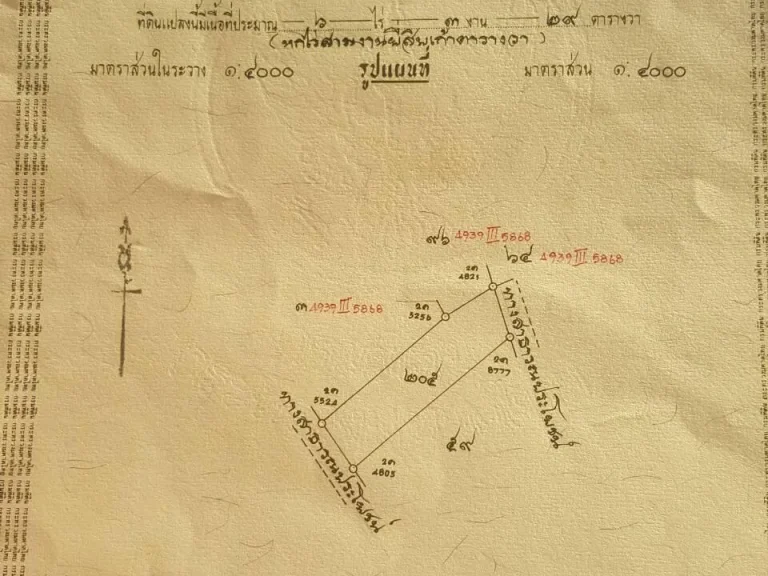 ที่ดินแปลงนี้มีเนื้อที่ประมาณ ๖ ไร่ ๓ งาน ๒๙ ตารางวา
(หกไร่สามงานยี่สิบเก้าตารางวา)
มาตราส่วนในระวาง ๑:๔๐๐๐ รูปแผนที่ มาตราส่วน ๑:๔๐๐๐
๙๖ 4939 III 5868
๖๔ 4939 III 5868
๓ 4939 III 5868
2ค 4821
2ค 5256
ทางสาธารณประโยชน์
2ค 8777
๒๐๕
2ค 5524
ทางสาธารณประโยชน์
๕๙
2ค 4805